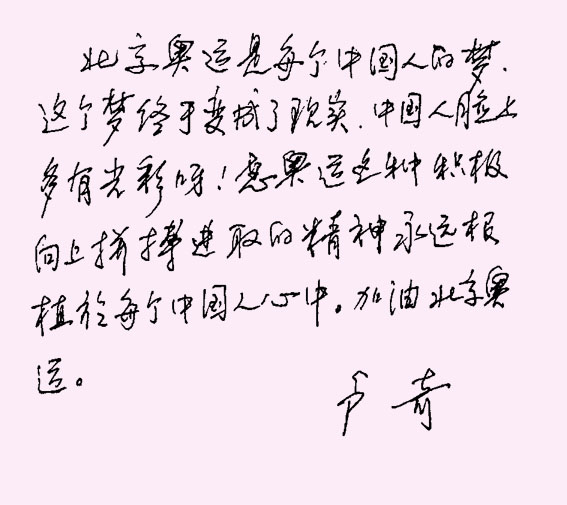 北京奥运是每个中国人的梦.
这个梦终于变成了现实.中国人脸上
多有光彩呀!愿奥运这种积极
向上拼搏进取的精神永远根
植於每个中国人心中。加油北京奥
运。
卢奇